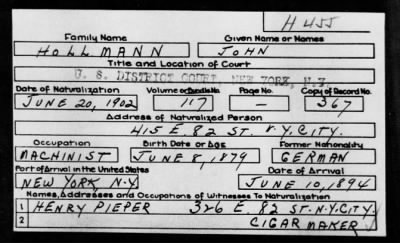 H455
Family Name Given Name or Names
HOLLMANN JOHN
Title and Location of Court
U. S. DISTRICT COURT, NEW YORK, N.Y.
Date of Naturalization Volume or Bundle No. Page No. Copy of Record No.
JUNE 20, 1902 117 — 367
Address of Naturalized Person
415 E. 82 ST. N.Y.CITY.
Occupation Birth Date or Age Former Nationality
MACHINIST JUNE 8, 1879 GERMAN
Port of Arrival in the United States Date of Arrival
NEW YORK N.Y. JUNE 10, 1894
Names, Addresses and Occupations of Witnesses To Naturalization
1 HENRY PIEPER 326 E. 82 ST. N.Y.CITY.
2 CIGAR MAKER